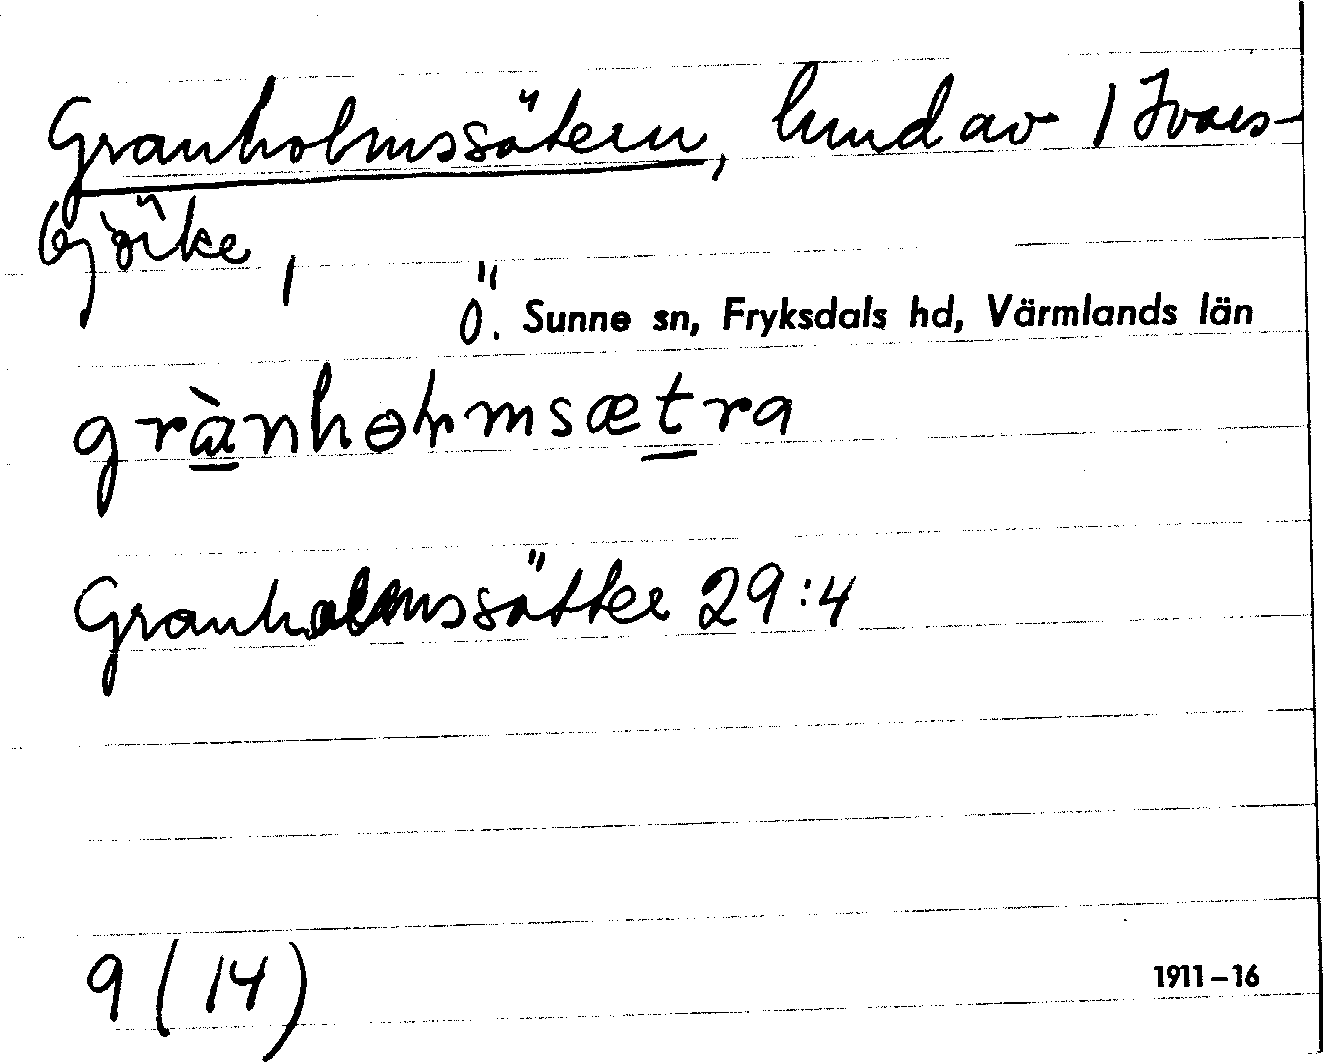 Granholmssätern, lund av 1 Ivars-
björke,
Ö. Sunne sn, Fryksdals hd, Värmlands län
grànhɵɫmsætra
Granholmssätter 29:4
9 (14)
1911–16